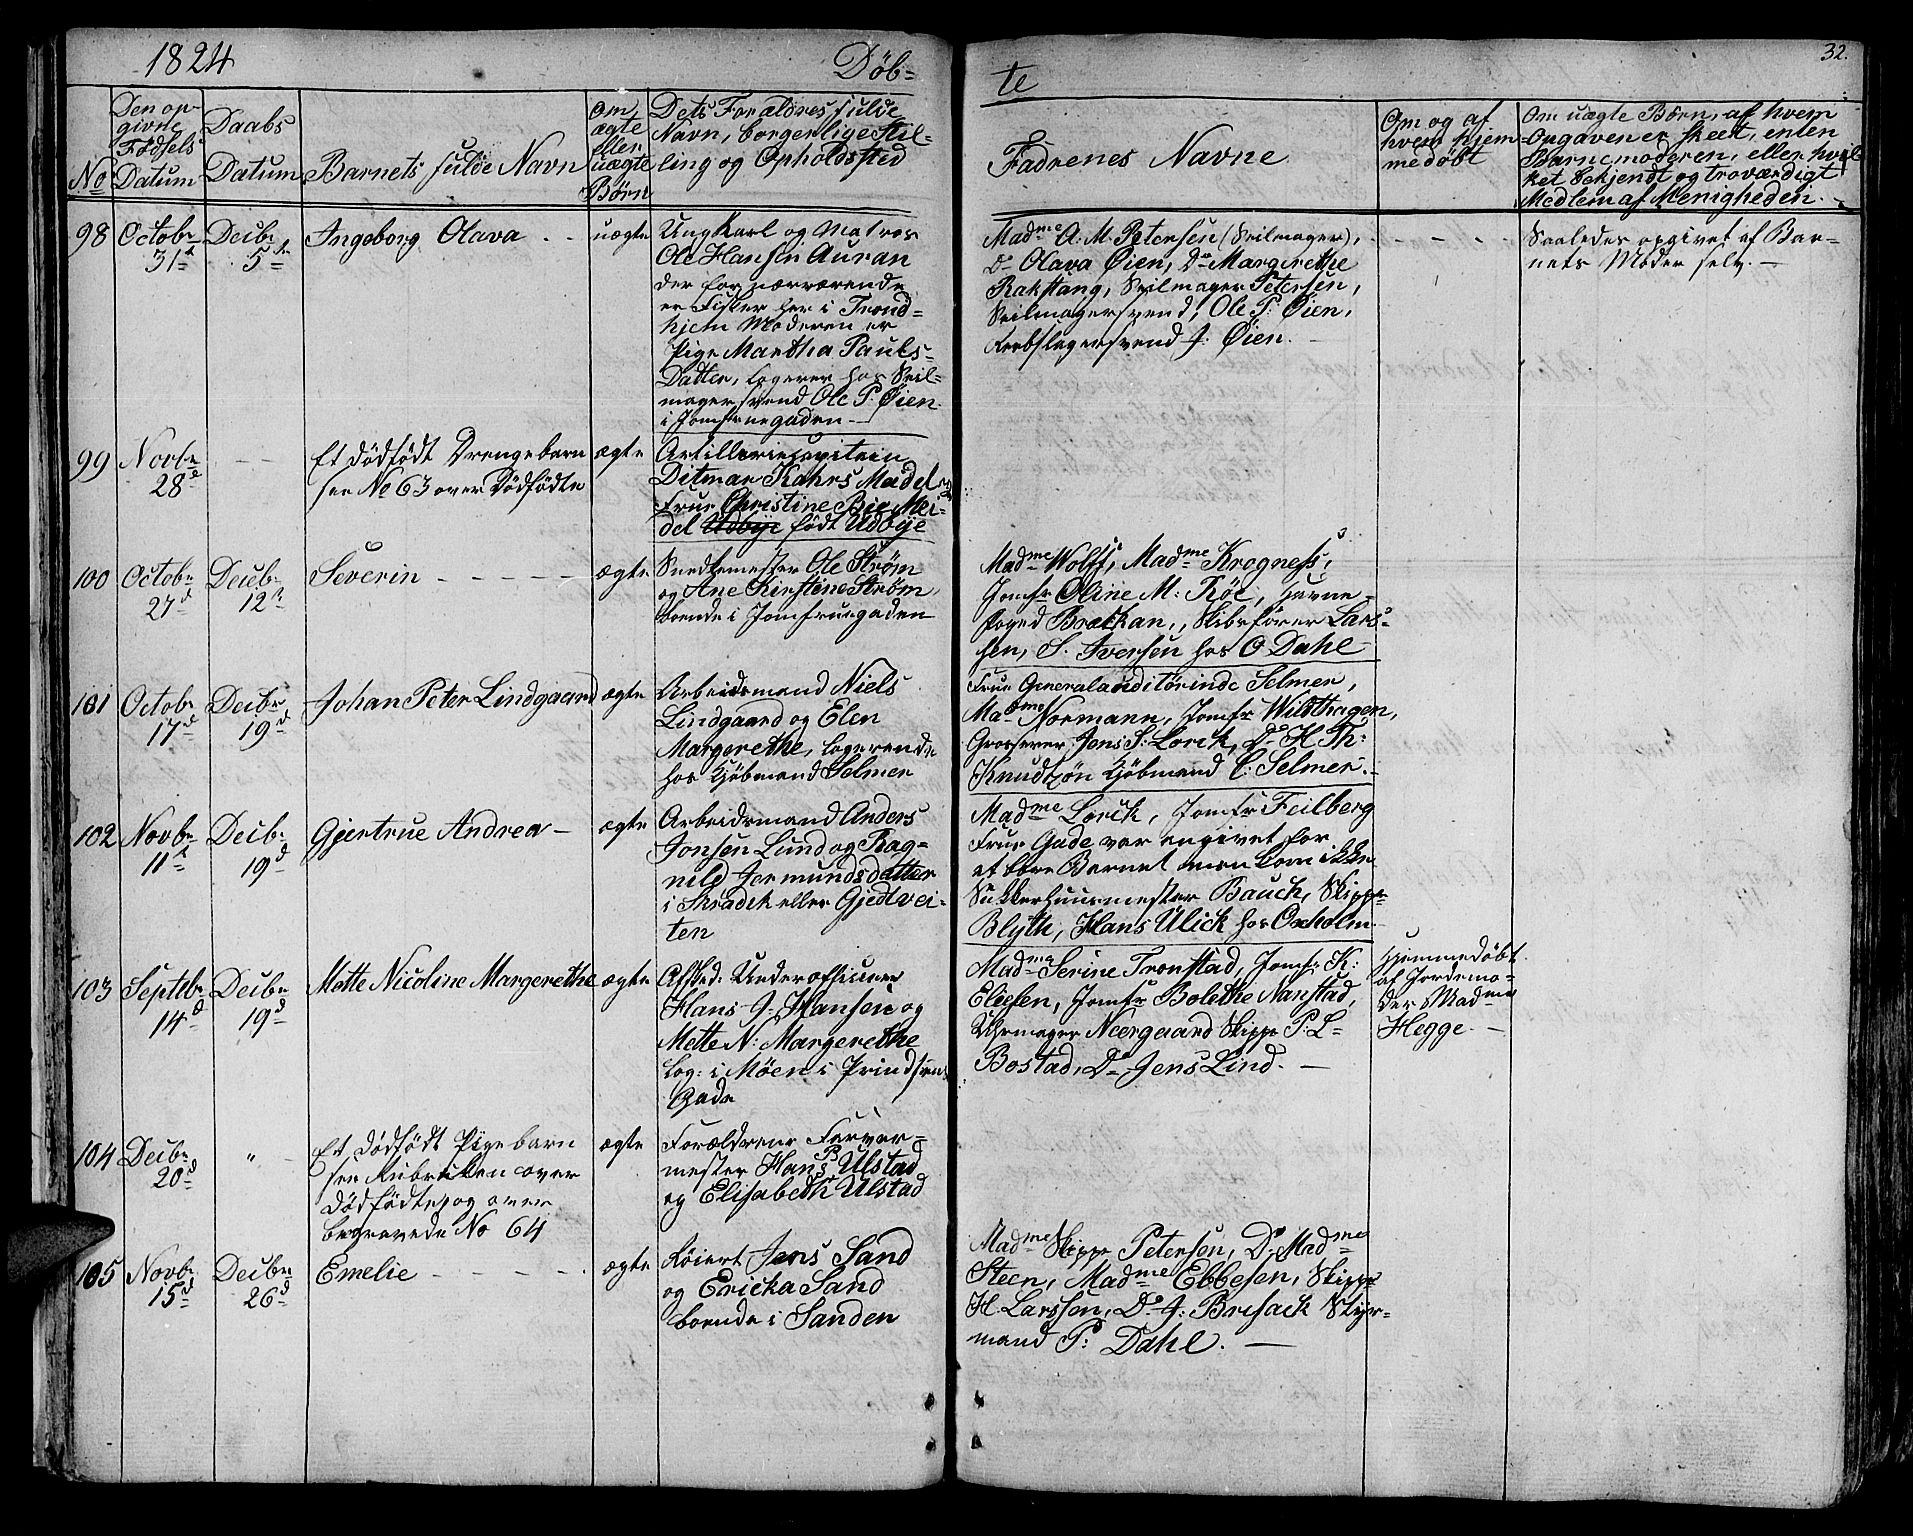 1824
Döb=
te
32.
No
Den op-
givne
Födsels
Datum
Daabs
Datum
Barnets fulde Navn
Om
ægte
eller
uægte
Börn
Dets Forældres fulde
Navn, borgerlige Stil-
ling og Opholdssted
Fadrenes Navne
Om og af
hvem hjem
medöbt
Om uægte Börn, af hvem
Opgaven er skeet, enten
Barnemoderen, eller hvil
ket bekjendt og troværdigt
Medlem af Menigheden.
98
Octobr
31t
Decbr
5te
Ingeborg Olava
uægte
Ungkarl og Matros
Ole Hansen Auran
der for nærværende
er Fisker her i Trond=
hjem Moderen er
Pige Martha Pauls-
Datter, logerer hos Seil=
magersvend Ole P. Øien
i Jomfruegaden
Madme A. M. Petersen (Seilmager),
Do Olava Øien, Do Margrethe
Rakstang, Seilmager Petersen,
Seilmagersvend, Ole P: Øien,
Reebslagersvend J: Øien.
Saaledes opgivet af Bar-
nets Moder selv.
99
Novbr
28de
Et dödfödt Drengebarn
see No 63 over Dödfödte
ægte
Artilleriecapitain
Ditmar Kahrs Meidel og
Frue Christine Bie Mei-
del Udbye født Udbye
100
Octobr
27d
Decbr
12te
Severin
ægte
Snedkemester Ole Ström
og Ane Kirstine Ström
boende i Jomfruegaden
Madme Wolff, Madme Krogness,
Jomfr Oline M: Röe, Havne-
foged Brækan, Skibsförer Lars-
sen, S. Iversen hos O Dahl
101
Octobr
17d
Decbr
19d
Johan Peter Lindgaard
ægte
Arbeidsmand Niels
Lindgaard og Elen
Margerethe, logerende
hos Kjöbmand Selmer
Frue Generalauditörinde Selmer,
Madme Normann, Jomfr Wildthagen,
Grosserer Jens S: Lorck, Do H Th:
Knudtzön Kjöbmand C: Selmer.
102
Novbr
11t
Decbr
19d
Gjertrue Andrea
ægte
Arbeidsmand Anders
Jonsen Lund og Rag-
nild Jermundsdatter
i eller Gjedtvei-
ten
Madme Lorck, Jomfr Feilberg
Frue Gade var angivet for
at bære Barnet men kom ikke
Sukkerhuusmester Bauch, Skippr
Blyth, Hans Ulick hos Oxholm
103
Septbr
14d
Decbr
19d
Mette Nicoline Margerethe
ægte
Afsked: Underofficeer
Hans J: Hansen og
Mette N: Margerethe
log: i Möen i Prindsens
Gade
Madme Serine Tronstad, Jomfr K:
Eliesen, Jomfr Bolethe Nanstad,
Uhrmager Neergaard Skippr P: L=
Bostad, Do Jens Lind.
Hjemmedöbt
af Jordemo-
der Madme
Hegge.
104
Decbr
20d
"
Et dödfödt Pigebarn
see Rubrikken over
Dödfödte og over
begravede No 64
ægte
Forældrene Farver=
mester Hans P Ulstad
og Elisabeth Ulstad
105
Novbr
15d
Decbr
26d
Emelie
ægte
Röiert Jens Sand
og Ericka Sand
boende i Sanden
Madme Skippr Petersen, Do Madme
Steen, Madme Ebbesen, Skippr
H. Larssen, Do J: Brisack Styr-
mand P: Dahl.